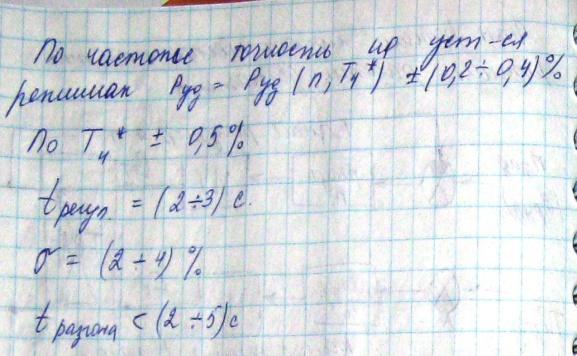 По частоте точность на уст-ся
режимах Pуд = Pуд (n, T4*) ± (0,2 ÷ 0,4)%
По T4* ± 0,5%
t регул = (2÷3) с.
σ = (2 ÷ 4) %
t разгона < (2 ÷5) с